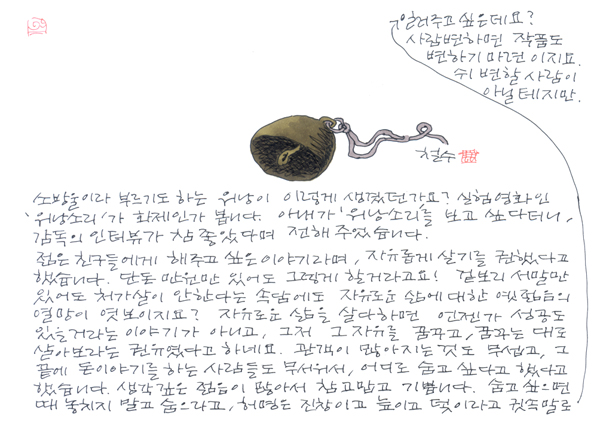 소방울이라 부르기도 하는 워낭이 이렇게 생겼던가요? 실험영화인
'워낭소리'가 화제인가 봅니다. 아내가 '워낭소리'를 보고 싶다더니,
감독의 인터뷰가 참 좋았다며 전해 주었습니다.
젊은 친구들에게 해주고 싶은 이야기라며, 자유롭게 살기를 권했다고
했습니다. 단돈 만원만 있어도 그렇게 할거라고요! 겉보리 서말만
있어도 처가살이 안한다는 속담에도 자유로운 삶에 대한 옛젊음의
열망이 엿보이지요? 자유로운 삶을 살다하면 언젠가 성공도
있을거라는 이야기가 아니고, 그저 그 자유를 꿈꾸고, 꿈꾸는 대로
살아보라는 권유였다고 하네요. 관객이 많아지는 것도 무섭고, 그
끝에 돈이야기를 하는 사람들도 무서워서, 어디로 숨고 싶다고 했다고
했습니다. 생각깊은 젊음이 많아서 참 고맙고 기쁩니다. 숨고 싶으면
때 놓치지 말고 숨으라고, 허명은 진창이고 늪이고 덫이라고 귓속말로
일러주고 싶은데요?
사람변하면 작품도
변하기 마련이지요.
쉬 변할 사람이
아닐테지만.
철수